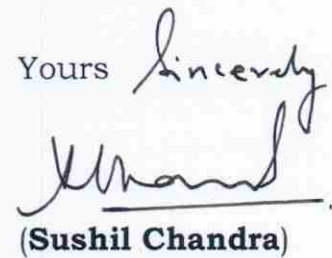 Yours Sincerely
(Sushil Chandra)